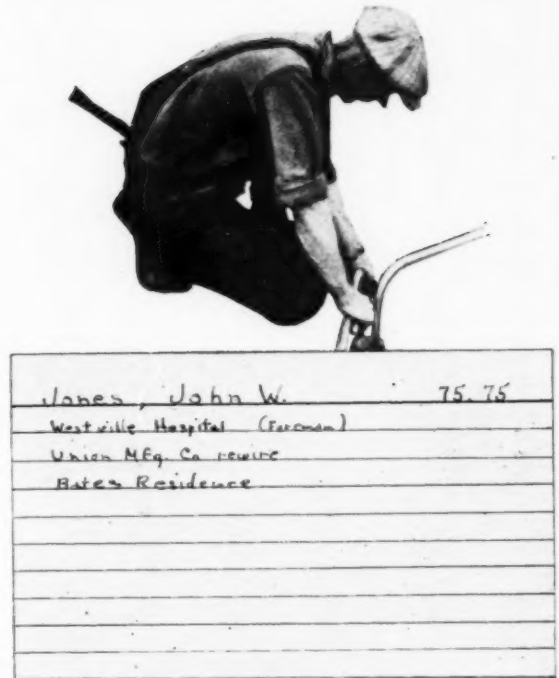 Jones, John W. 75.75
Westville Hospital (Foreman)
Union Mfg. Co rewire
Bates Residence